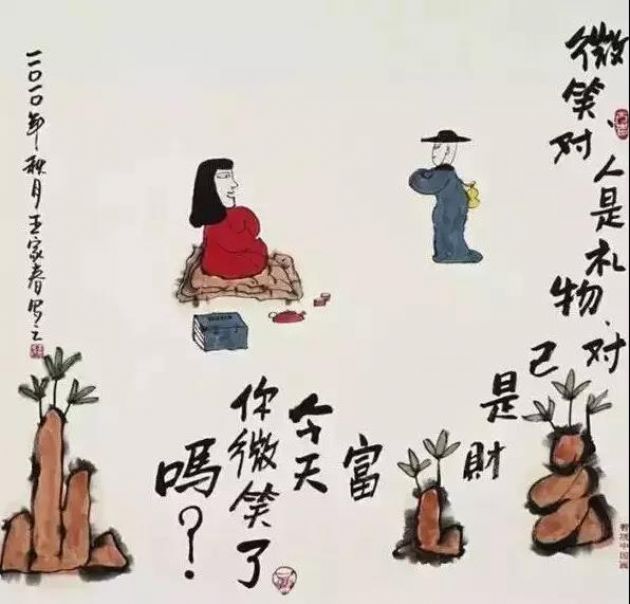 微笑、对
人是礼物、对
己
是
財
富
今天
你微笑了
嗎？
二〇一〇年秋月王家春写之